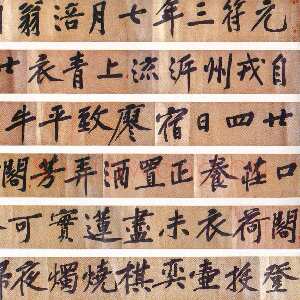 元符三年七月涪翁
自戎州泝流上青衣廿
廿四日宿廖致平牛
口莊養正置酒弄芳閣
閣荷衣未盡蓮實可
登投壺奕棋燒燭夜歸